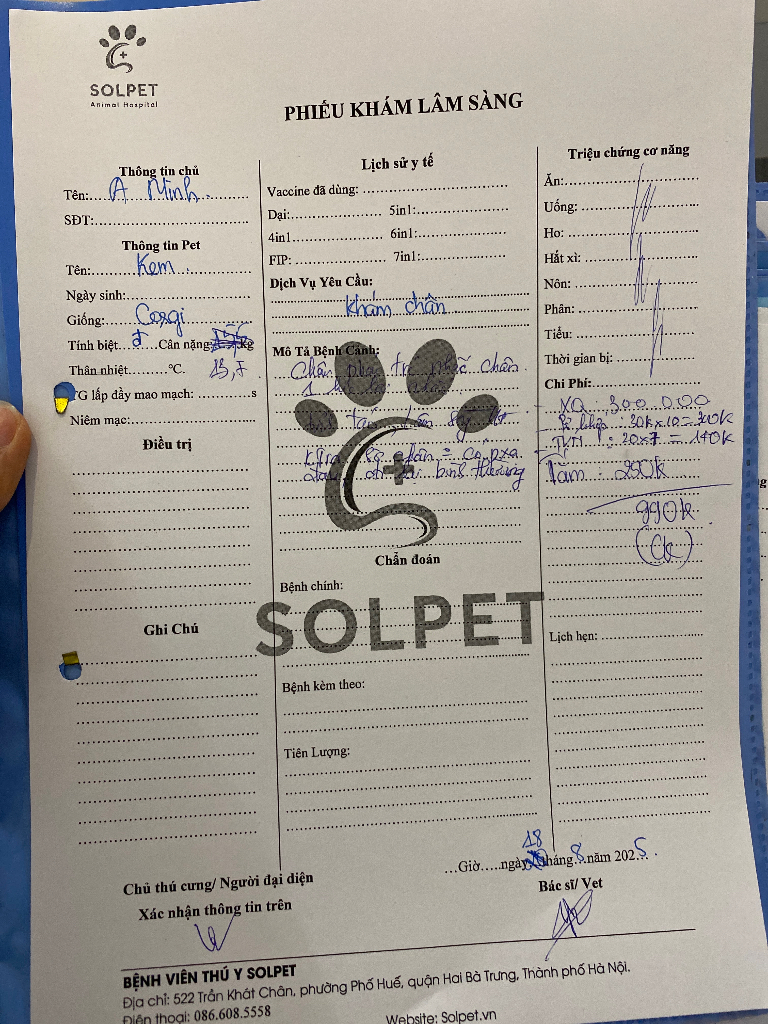 SOLPET
Animal Hospital
PHIẾU KHÁM LÂM SÀNG
Thông tin chủ
Tên: A Minh
SĐT:
Thông tin Pet
Tên: Kem
Ngày sinh:
Giống: Corgi
Tính biệt ♂ Cân nặng kg
13,7
Thân nhiệt ℃.
TG lấp dầy mao mạch: s
Niêm mạc:
Điều trị
Ghi Chú
Lịch sử y tế
Vaccine đã dùng:
Dại: 5in1:
4in1 6in1:
FIP: 7in1:
Dịch Vụ Yêu Cầu:
Khám chân
Mô Tả Bệnh Cảnh:
Chân phải nhấc chân
1
chân = co, pxạ
bình thường
Chẩn đoán
Bệnh chính:
SOLPET
Bệnh kèm theo:
Tiên Lượng:
Triệu chứng cơ năng
Ăn:
Uống:
Ho:
Hắt xì:
Nôn:
Phân:
Tiểu:
Thời gian bị:
Chi Phí:
XQ : 300.000
khớp : 30k x 10 = 300k
: 20 x 7 = 140k
Tắm : 250k
990k
(Ck)
Lịch hẹn:
Giờ ngày 18 tháng 8 năm 2025
Chủ thú cưng/ Người đại diện
Xác nhận thông tin trên
Bác sĩ/ Vet
BỆNH VIỆN THÚ Y SOLPET
Địa chỉ: 522 Trần Khát Chân, phường Phố Huế, quận Hai Bà Trưng, Thành phố Hà Nội.
Điện thoại: 086.608.5558 Website: Solpet.vn